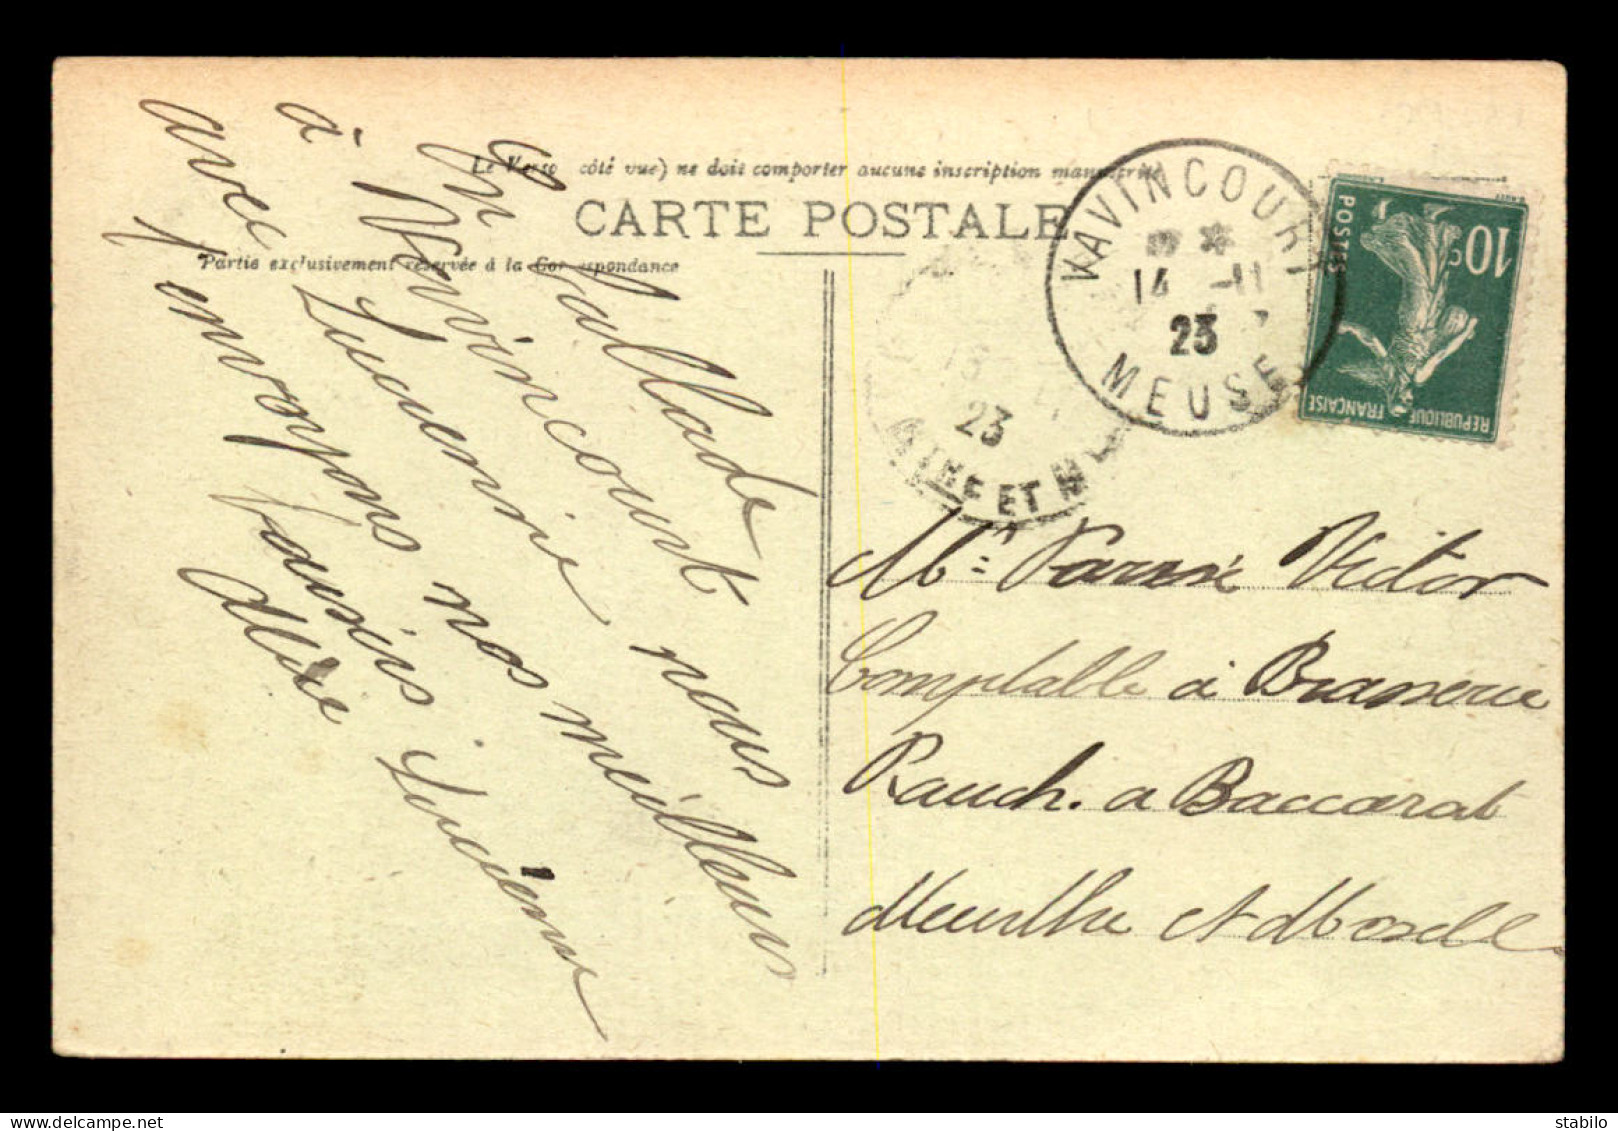 Le Verso côté vue) ne doit comporter aucune inscription manuscrite
CARTE POSTALE
Partie exclusivement réservée à la Correspondance
En Ballade
à Navincourt
avec Lucienne nous
envoyons nos meilleurs
baisers Lucienne
Alice
NAVINCOURT
14 -11
23
MEUSE
15
23
ET M
POSTES
10c
REPUBLIQUE FRANÇAISE
Mr Victor
Comptable à Brasserie
Rauch. a Baccarat
Meurthe et Moselle
stabilo